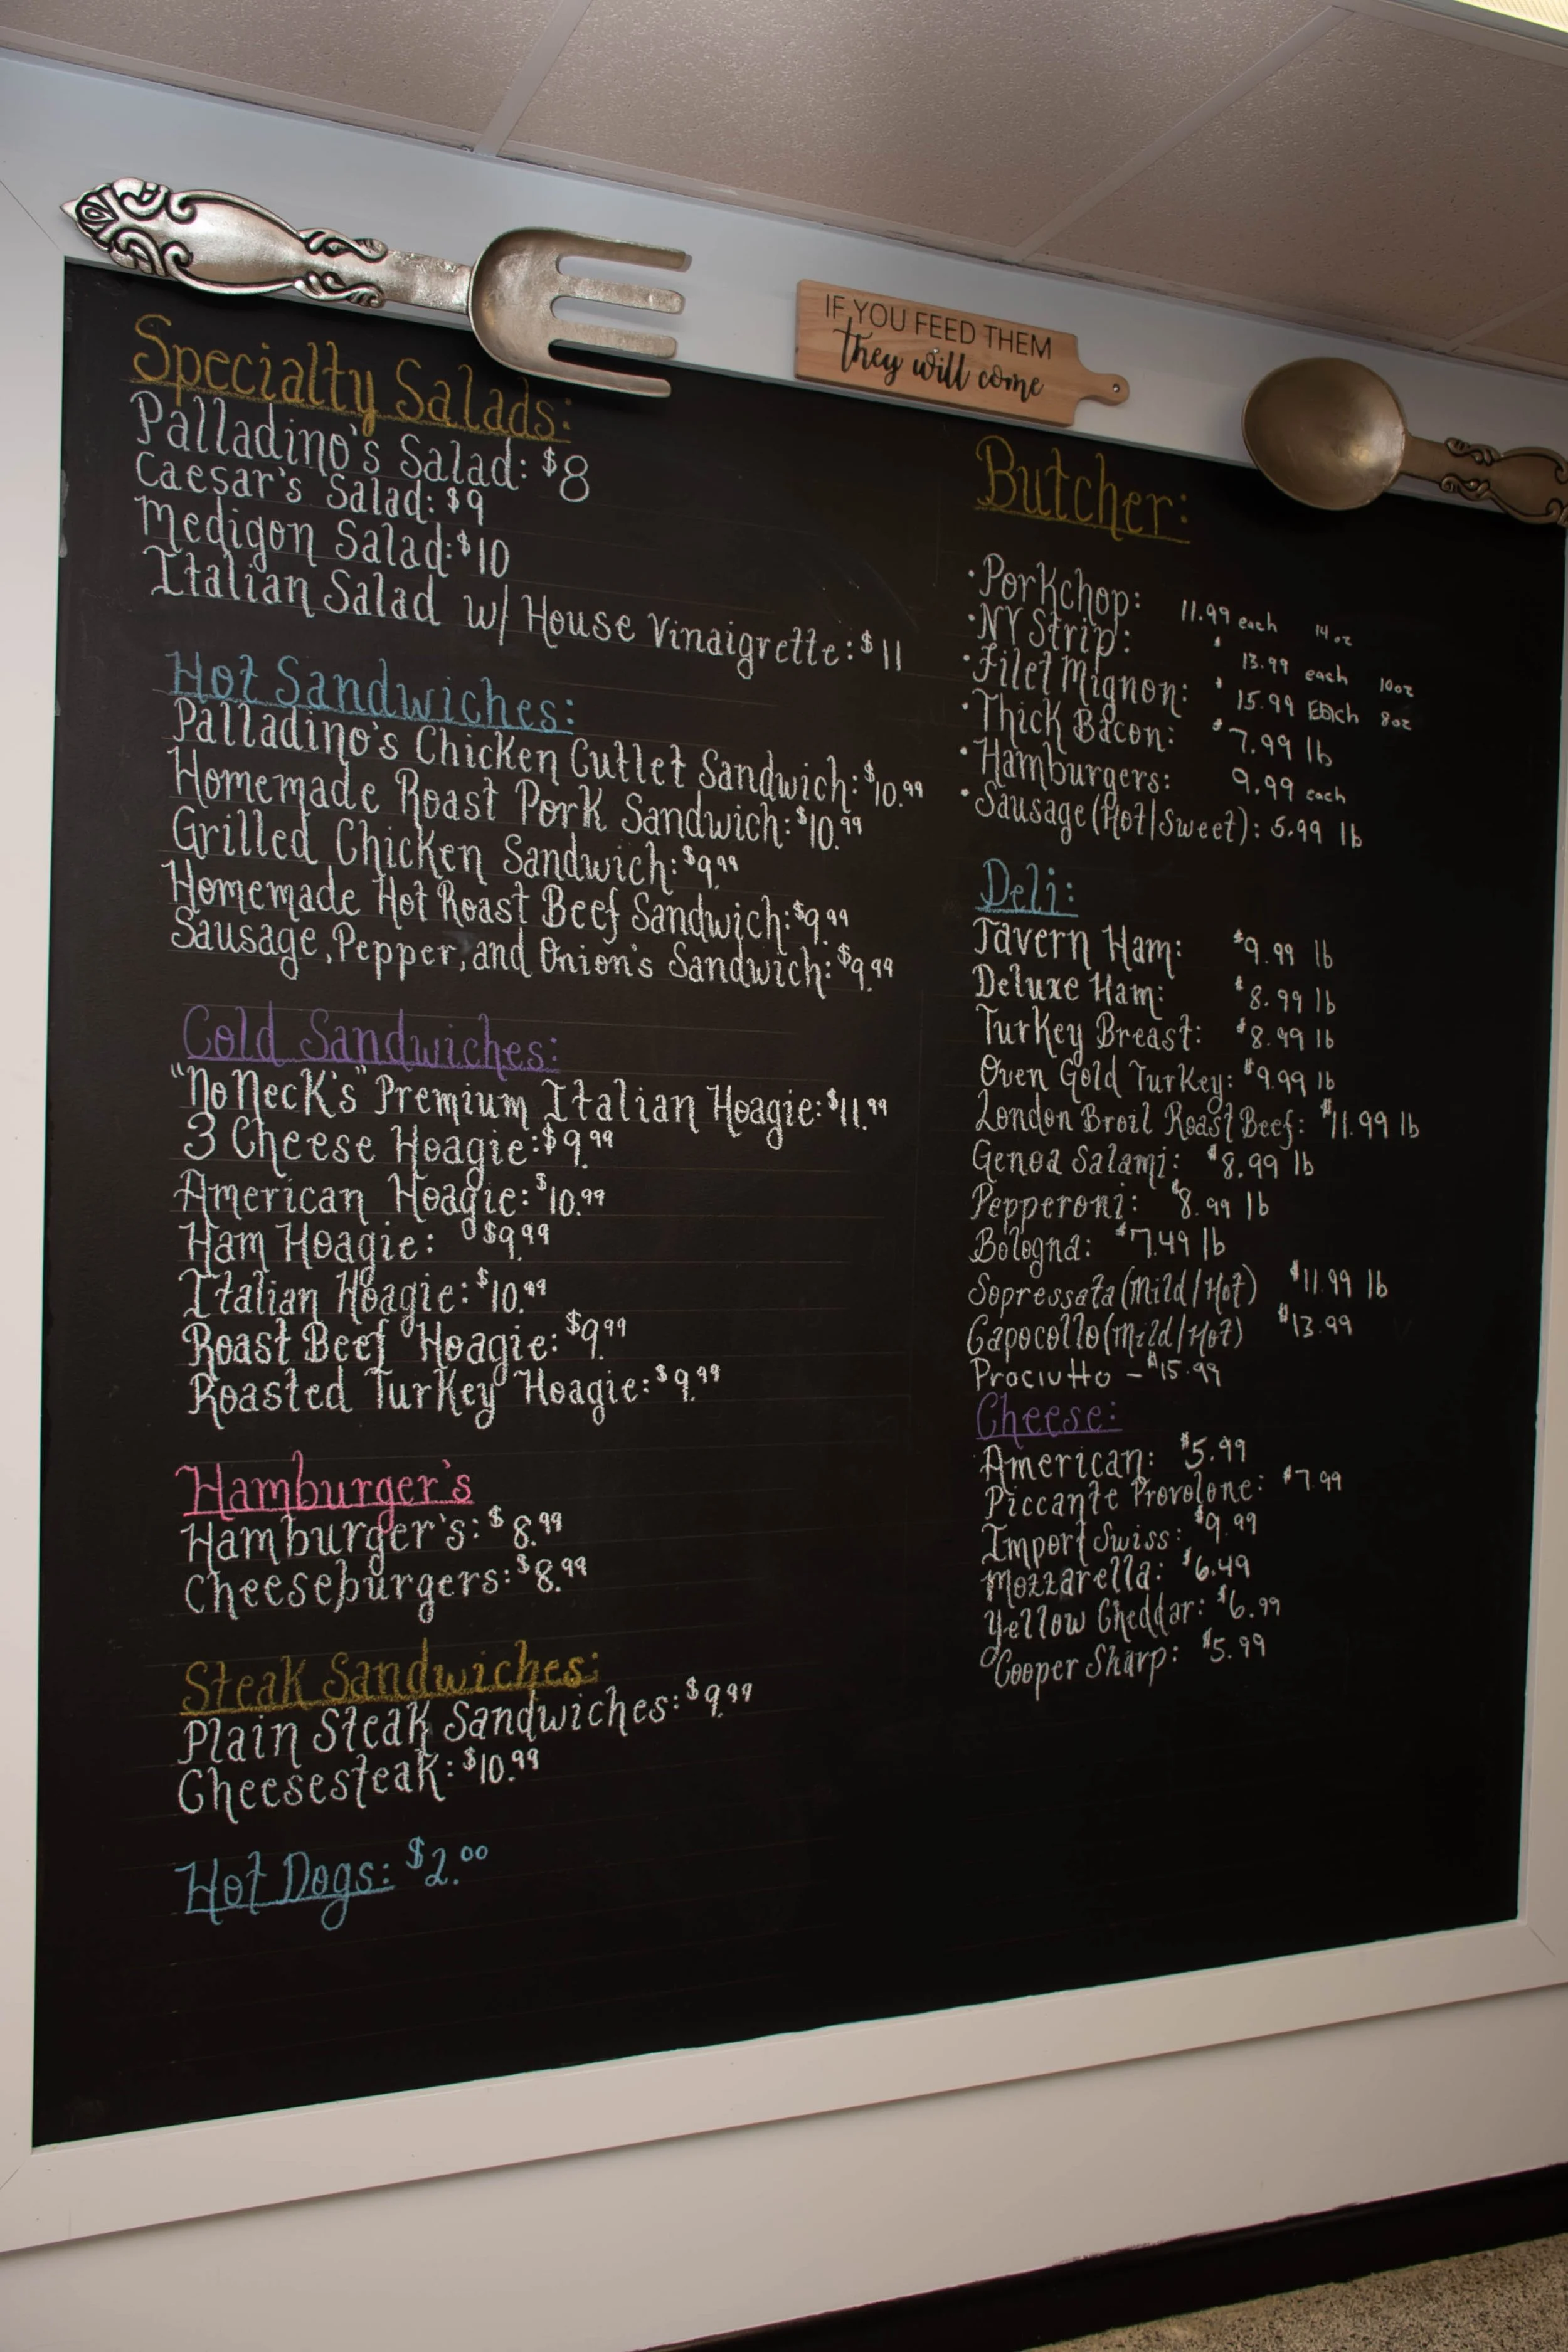 IF YOU FEED THEM
they will come
Specialty Salads:
Palladino's Salad: $8
Caesar's Salad: $9
Medigon Salad: $10
Italian Salad w/ House Vinaigrette: $11
Hot Sandwiches:
Palladino's Chicken Cutlet Sandwich: $10.99
Homemade Roast Pork Sandwich: $10.99
Grilled Chicken Sandwich: $9.99
Homemade Hot Roast Beef Sandwich: $9.99
Sausage, Pepper, and Onion's Sandwich: $9.99
Cold Sandwiches:
"No Neck's" Premium Italian Hoagie: $11.99
3 Cheese Hoagie: $9.99
American Hoagie: $10.99
Ham Hoagie: $9.99
Italian Hoagie: $10.99
Roast Beef Hoagie: $9.99
Roasted Turkey Hoagie: $9.99
Hamburger's
Hamburger's: $8.99
Cheeseburgers: $8.99
Steak Sandwiches:
Plain Steak Sandwiches: $9.99
Cheesesteak: $10.99
Hot Dogs: $2.00
Butcher:
• Porkchop: 11.99 each 14oz
• NY Strip: $13.99 each 10oz
• Filet Mignon: $15.99 Each 8oz
• Thick Bacon: $7.99 lb
• Hamburgers: 9.99 each
• Sausage (Hot/Sweet): 5.99 lb
Deli:
Tavern Ham: $9.99 lb
Deluxe Ham: $8.99 lb
Turkey Breast: $8.99 lb
Oven Gold Turkey: $9.99 lb
London Broil Roast Beef: $11.99 lb
Genoa Salami: $8.99 lb
Pepperoni: $8.99 lb
Bologna: $7.49 lb
Sopressata (Mild/Hot) $11.99 lb
Capocollo (Mild/Hot) $13.99
Prociutto - $15.99
Cheese:
American: $5.99
Piccante Provolone: $7.99
Import Swiss: $9.99
Mozzarella: $6.49
Yellow Cheddar: $6.99
Cooper Sharp: $5.99